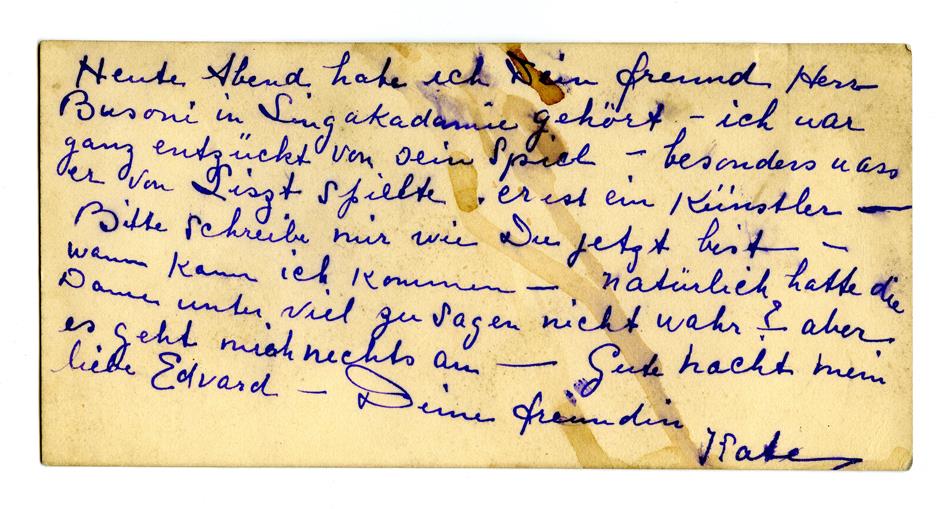 Heute Abend habe ich Dein freund Herr
Busoni in Singakadamie gehört – ich war
ganz entzückt von Dein Spiel – besonders was
er von Liszt spielte. er ist ein Künstler —
Bitte schreibe mir wie Du jetzt bist –
wann kann ich kommen — natürlich hatte die
Damen unter viel zu sagen nicht wahr? aber
es geht mich nechts an — Gute nacht mein
liebe Edvard – Deine freundin
Kate